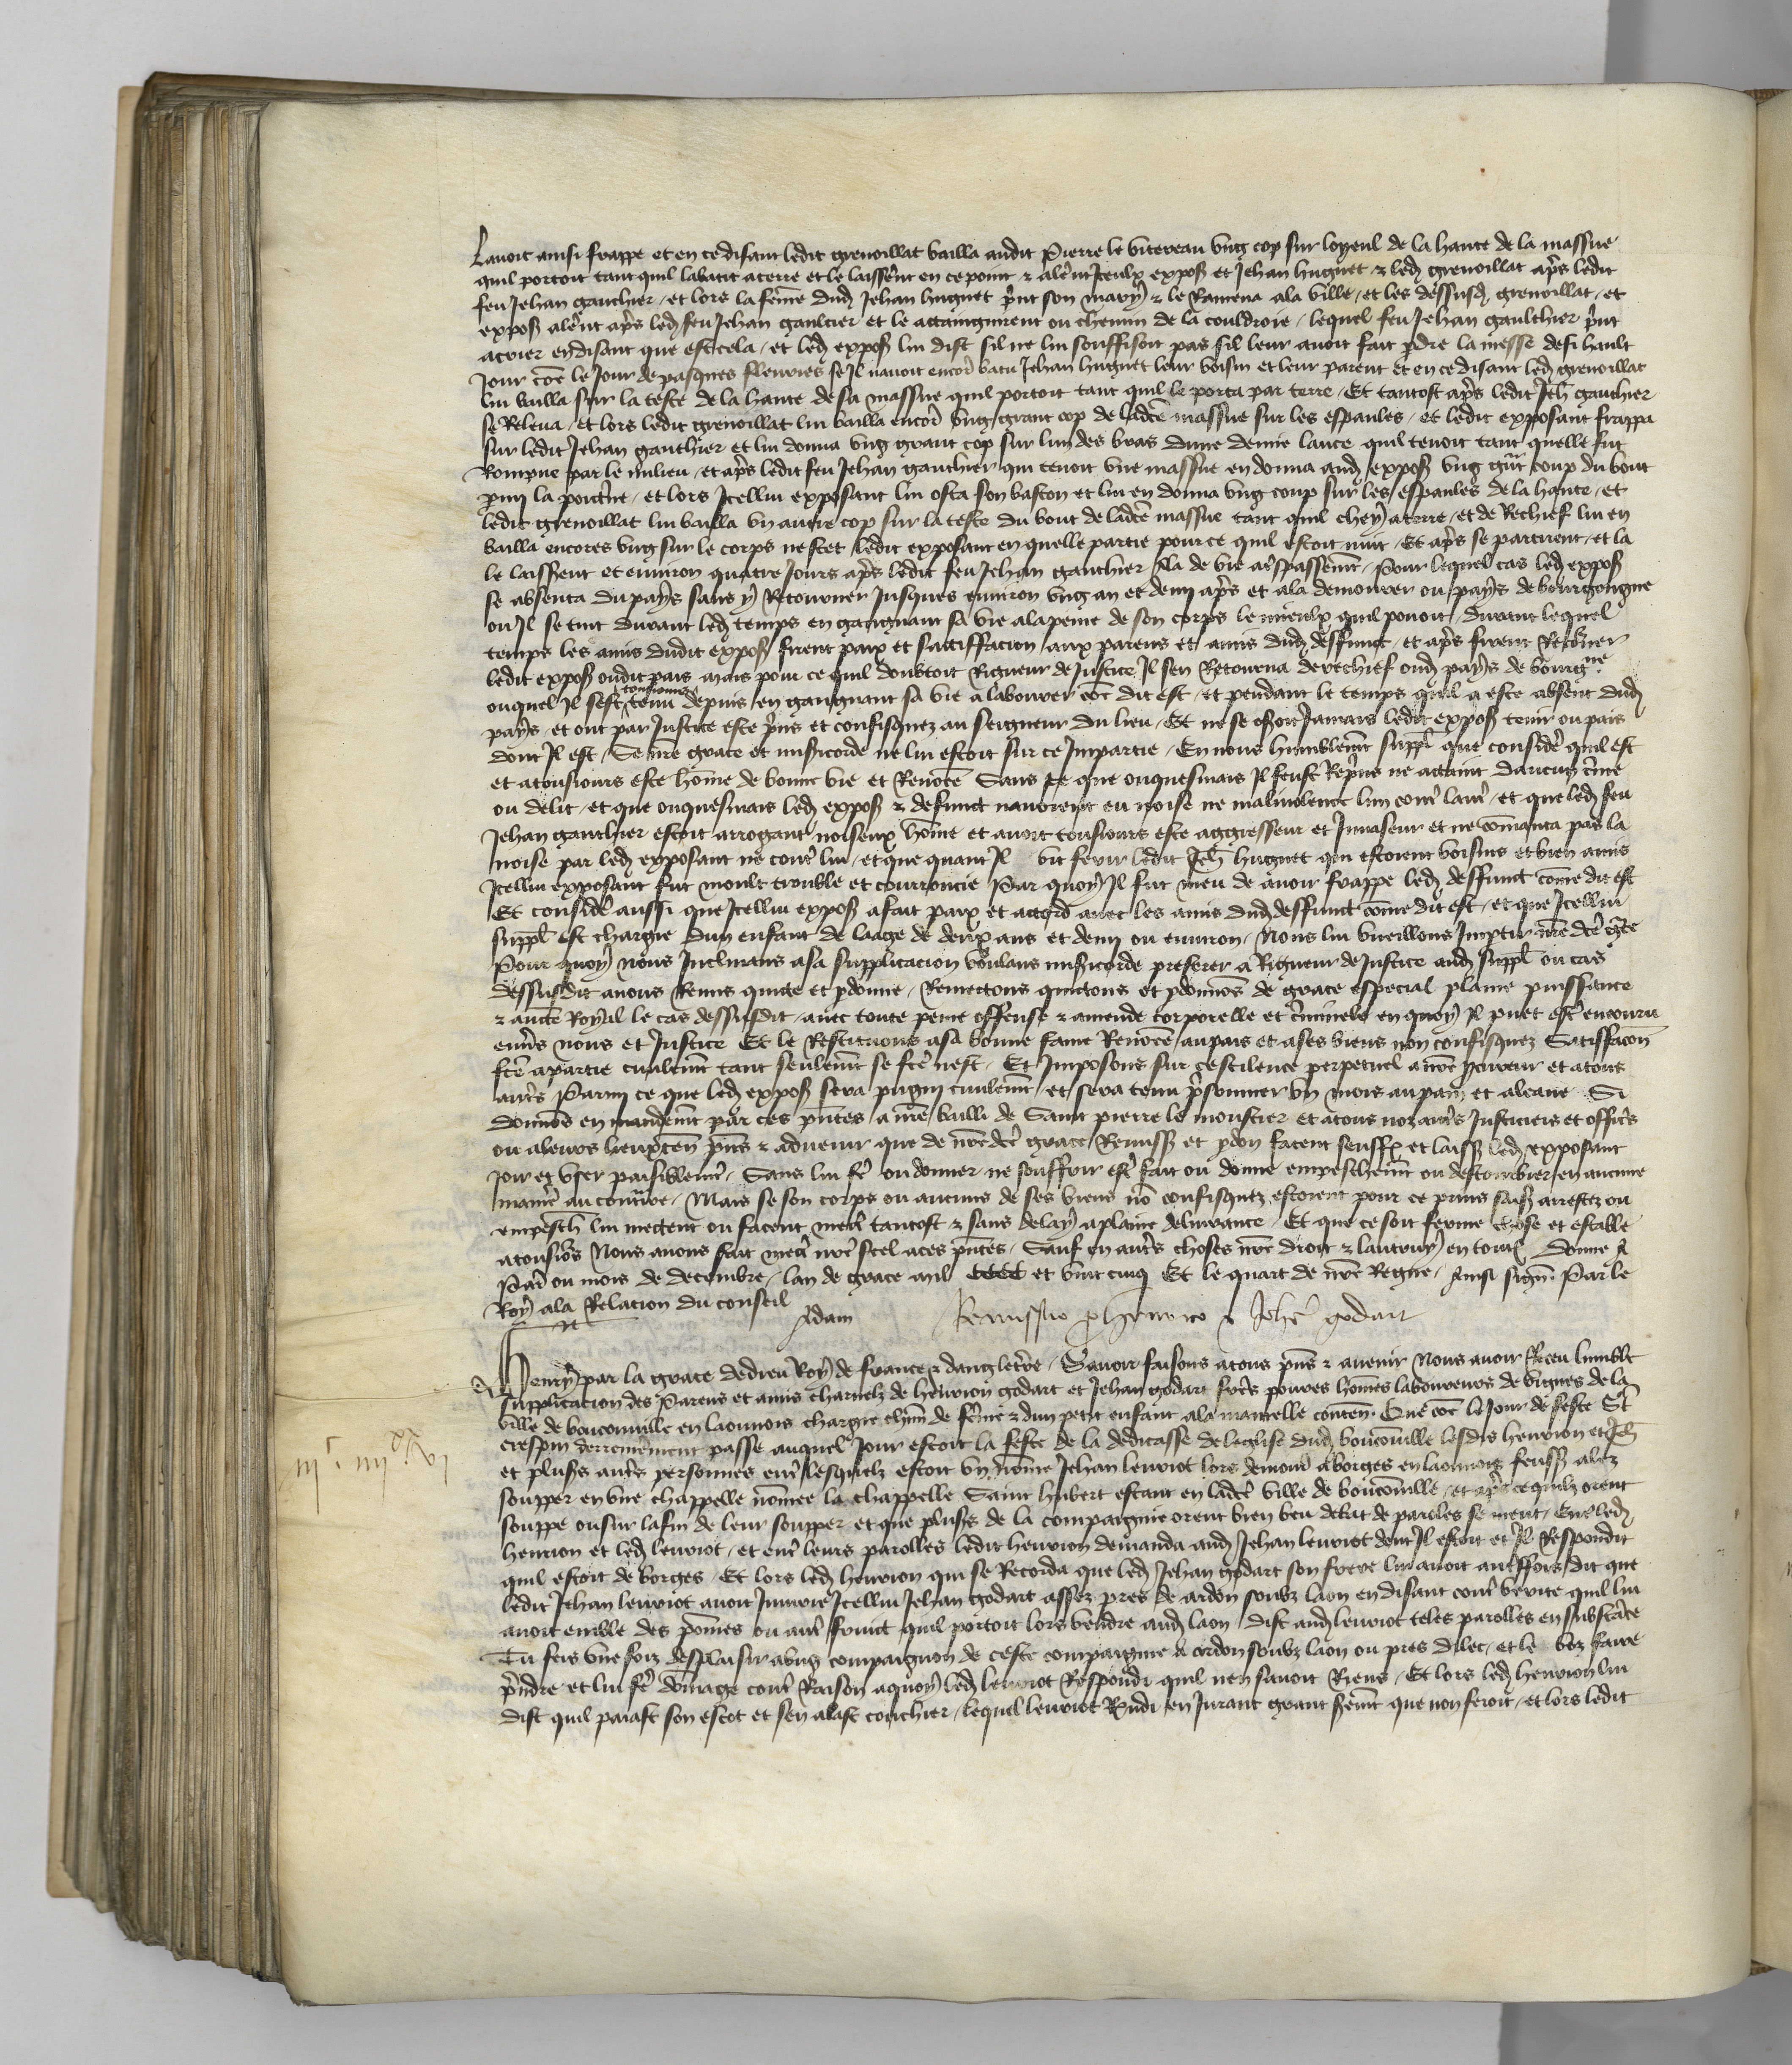 Lavoit ainsi frappe et en ce disant ledit grenoillat bailla audit Pierre le buteveau ung cop sur loyeul de la hante de la massue
quil portoit tant quil labatit a terre et le laisserent en ce point & alerent Iceulx expos et Jehan huguet & led grenoillat apres ledit
feu Jehan gauthier / et lors la femme dud Jehan huguet prist son mary & le Ramena a la ville / et les dessusd grenoillat / et
expos alerent apres led feu Jehan gaultier et le attaingnirent ou chemin de la couldroie / lequel feu Jehan gaulthier prist
a crier en disant que est cela / et led expos lui dist sil ne lui souffisoit pas sil leur avoit fait perdre la messe de si hault
Jour come le Jour de pasques fleuries se Il navoit encores batu Jehan huguet leur voisin et leur parent Et en ce disant led grenoillat
lui bailla sur la teste de la hante de sa massue quil portoit tant quil le porta par terre / Et tantost apres ledit Jeh gauthier
se Releva / et lors ledit grenoillat lui bailla encores ung grant cop de ladicte massue sur les espaules / et ledit exposant frappa
sur ledit Jehan gauthier et lui donna ung grant cop sur lun des bras dune demie lance quil tenoit tant quelle fut
Rompue par le milieu / et apres ledit feu Jehan gauthier qui tenoit une massue en donna aud expos ung grant coup du bout
parmi la poictrine / et lors Icellui exposant lui osta son baston et lui en donna ung coup sur les espaules de la hante / et
ledit grenoillat lui bailla un autre cop sur la teste du bout de ladicte massue tant quil chey a terre / et de Rechief lui en
bailla encores ung sur le corps ne scet ledit exposant en quelle partie pour ce quil estoit nuit / Et apres se partirent / et la
le laisserent et environ quatre Jours apres ledit feu Jehan gauthier ala de vie a trespassement / Pour lequel cas led expos
se absenta du pays sans y Retourner Jusques environ ung an et demi apres et ala demourer ou pays de bourgongne
ou Il se tint durant led temps en gaignant sa vie a la peine de son corps le mieulx quil povoit / durant lequel
temps les amis dudit expos firent paix et satiffacion aux parens et amis dud deffunct / et apres firent Retourner
ledit expos oudit pais mais pour ce quil doubtoit Rigueur de Justice Il sen Retourna derechief oud pays de bourgne
ouquel Il sest continuelment tenu depuis en gaignant sa vie a labourer come dit est / et pendant le temps quil a este absent dud
pays / et ont par Justice este prins et confisquez au seigneur du lieu / Et ne se osoit Jamais ledit expos tenir ou pais
dont Il est / Se nostre grace et misericorde ne lui estoit sur ce Impartie / En nous humblement suppl que consideré quil est
et a tousiours este homme de bonne vie et Renommee Sans ce que onquesmais Il feust Reprins ne attaint daucun crime
ou delit / et que onquesmais led expos & defunct navoient eu noise ne malivolence lun contre lautre / et que led feu
Jehan gauthier estoit arrogant noiseux homme et avoit tousiours este aggresseur et Invaseur et ne commança pas la
noise par led exposant ne contre lui / et que quant Il vit ferir ledit Jeh huguet qui estoient voisins et bien amis
Icellui exposant fut moult trouble et courroucie Par quoy Il fut meu de avoir frappe led deffunct come dit est
Et consideré aussi que Icellui expos a fait paix et accord avec les amis dud deffunct come dit est / et que Icellui
suppl est chargie dun enfant de laage de deux ans et demi ou environ / Nous lui vueillons Impartir nostre dicte grace
Pour quoy nous Inclinans a sa supplicacion voulans misericorde preferer a Rigueur de Justice aud suppl ou cas
dessusdit avons Remis quicte et pardonne / Remettons quictons et pardonnons de grace especial plaine puissance
& auctorite Royal le cas dessusdit / avec toute peine offense & amende corporelle et criminele en quoy Il puet estre encouru
envers nous et Justice Et le Restituons a sa bonne fame Renommee au pais et a ses biens non confisquez Satisfacion
faicte a partie civilement tant seulement se faicte nest / Et Imposons sur ce silence perpetuel a nostre procureur et a tous
autres Parmi ce que led expos sera pugni civilement / et sera tenu prisonnier un mois au pain et a leaue / Si
donnons en mandement par ces presentes a nostre bailli de Saint pierre le moustier et a tous noz autres Justiciers et officiers
ou a leurs lieuxtenans presens & advenir que de nostre dicte grace Remission et pardon facent seuffrent et laissent led exposant
joir et user paisiblement / Sans lui faire ou donner ne souffrir estre fait ou donne empeschement ou destourbier en aucune
maniere au contraire / Mais se son corps ou aucuns de ses biens non confisquez estoient pour ce prins saisis arrestez ou
empesch lui mettent ou facent mettre tantost & sans delay a plaine delivrance / Et que ce soit ferme chose et estable
a tousiours Nous avons fait mettre nostre scel a ces presentes / Sauf en autres choses nostre droit & lautruy en toutes / Donne a
Paris ou mois de decembre / lan de grace mil cccc et vint cinq Et le quart de nostre Regne / Ainsi signe Par le
Roy a la Relacion du conseil
Adam
Remissio pro henrico & Johe godart
Henry par la grace de dieu Roy de france & dangleterre / Savoir faisons a tous presens & avenir Nous avoir Receu lumble
supplicacion des Parens et amis charnelz de henrion godart et Jehan godart freres povres hommes laboureurs de vignes de la
ville de bouconville en laonnois chargie chascun de femme & dun petit enfant a la mamelle contenant Que come le Jour de feste St
crespin derrenierement passe auquel Jour estoit la feste de la dedicasse de leglise dud bouconville lesdis henrion et Jeh
et plusieurs autres personnes entre lesquelz estoit un nomme Jehan leuriot lors demourant a borges en laonnois feussent alez
soupper en une chappelle nommee la chappelle Saint hubert estant en ladicte ville de bouconville / et apres ce quilz orent
souppe ou sur la fin de leur soupper et que plusieurs de la compaignie orent bien beu debat de paroles se meut / Entre led
henrion et led leuriot / et entre leurs parolles ledit henrion demanda aud Jehan leuriot dont Il estoit et Il Respondit
quil estoit de borges / Et lors led henrion qui se Recorda que led Jehan godart son frere lui avoit autreffois dit que
ledit Jehan leuriot avoit Injurie Icellui Jehan godart assez pres de ardon soubz laon en disant contre verite quil lui
avoit emble des pommes ou autre fruict quil portoit lors vendre aud laon / dist aud leuriot teles parolles en substance
Tu feis une foiz desplaisir a ung compaignon de ceste compaignie a ardon soubz laon ou pres dilec / et le voz faire
prendre et lui faire dommage contre Raison a quoy led leuriot Respondi quil nen savoit Riens / Et lors led henrion lui
dist quil paiast son escot et sen alast couchier / lequel leuriot Respondi en Jurant grant serement que non feroit / et lors ledit